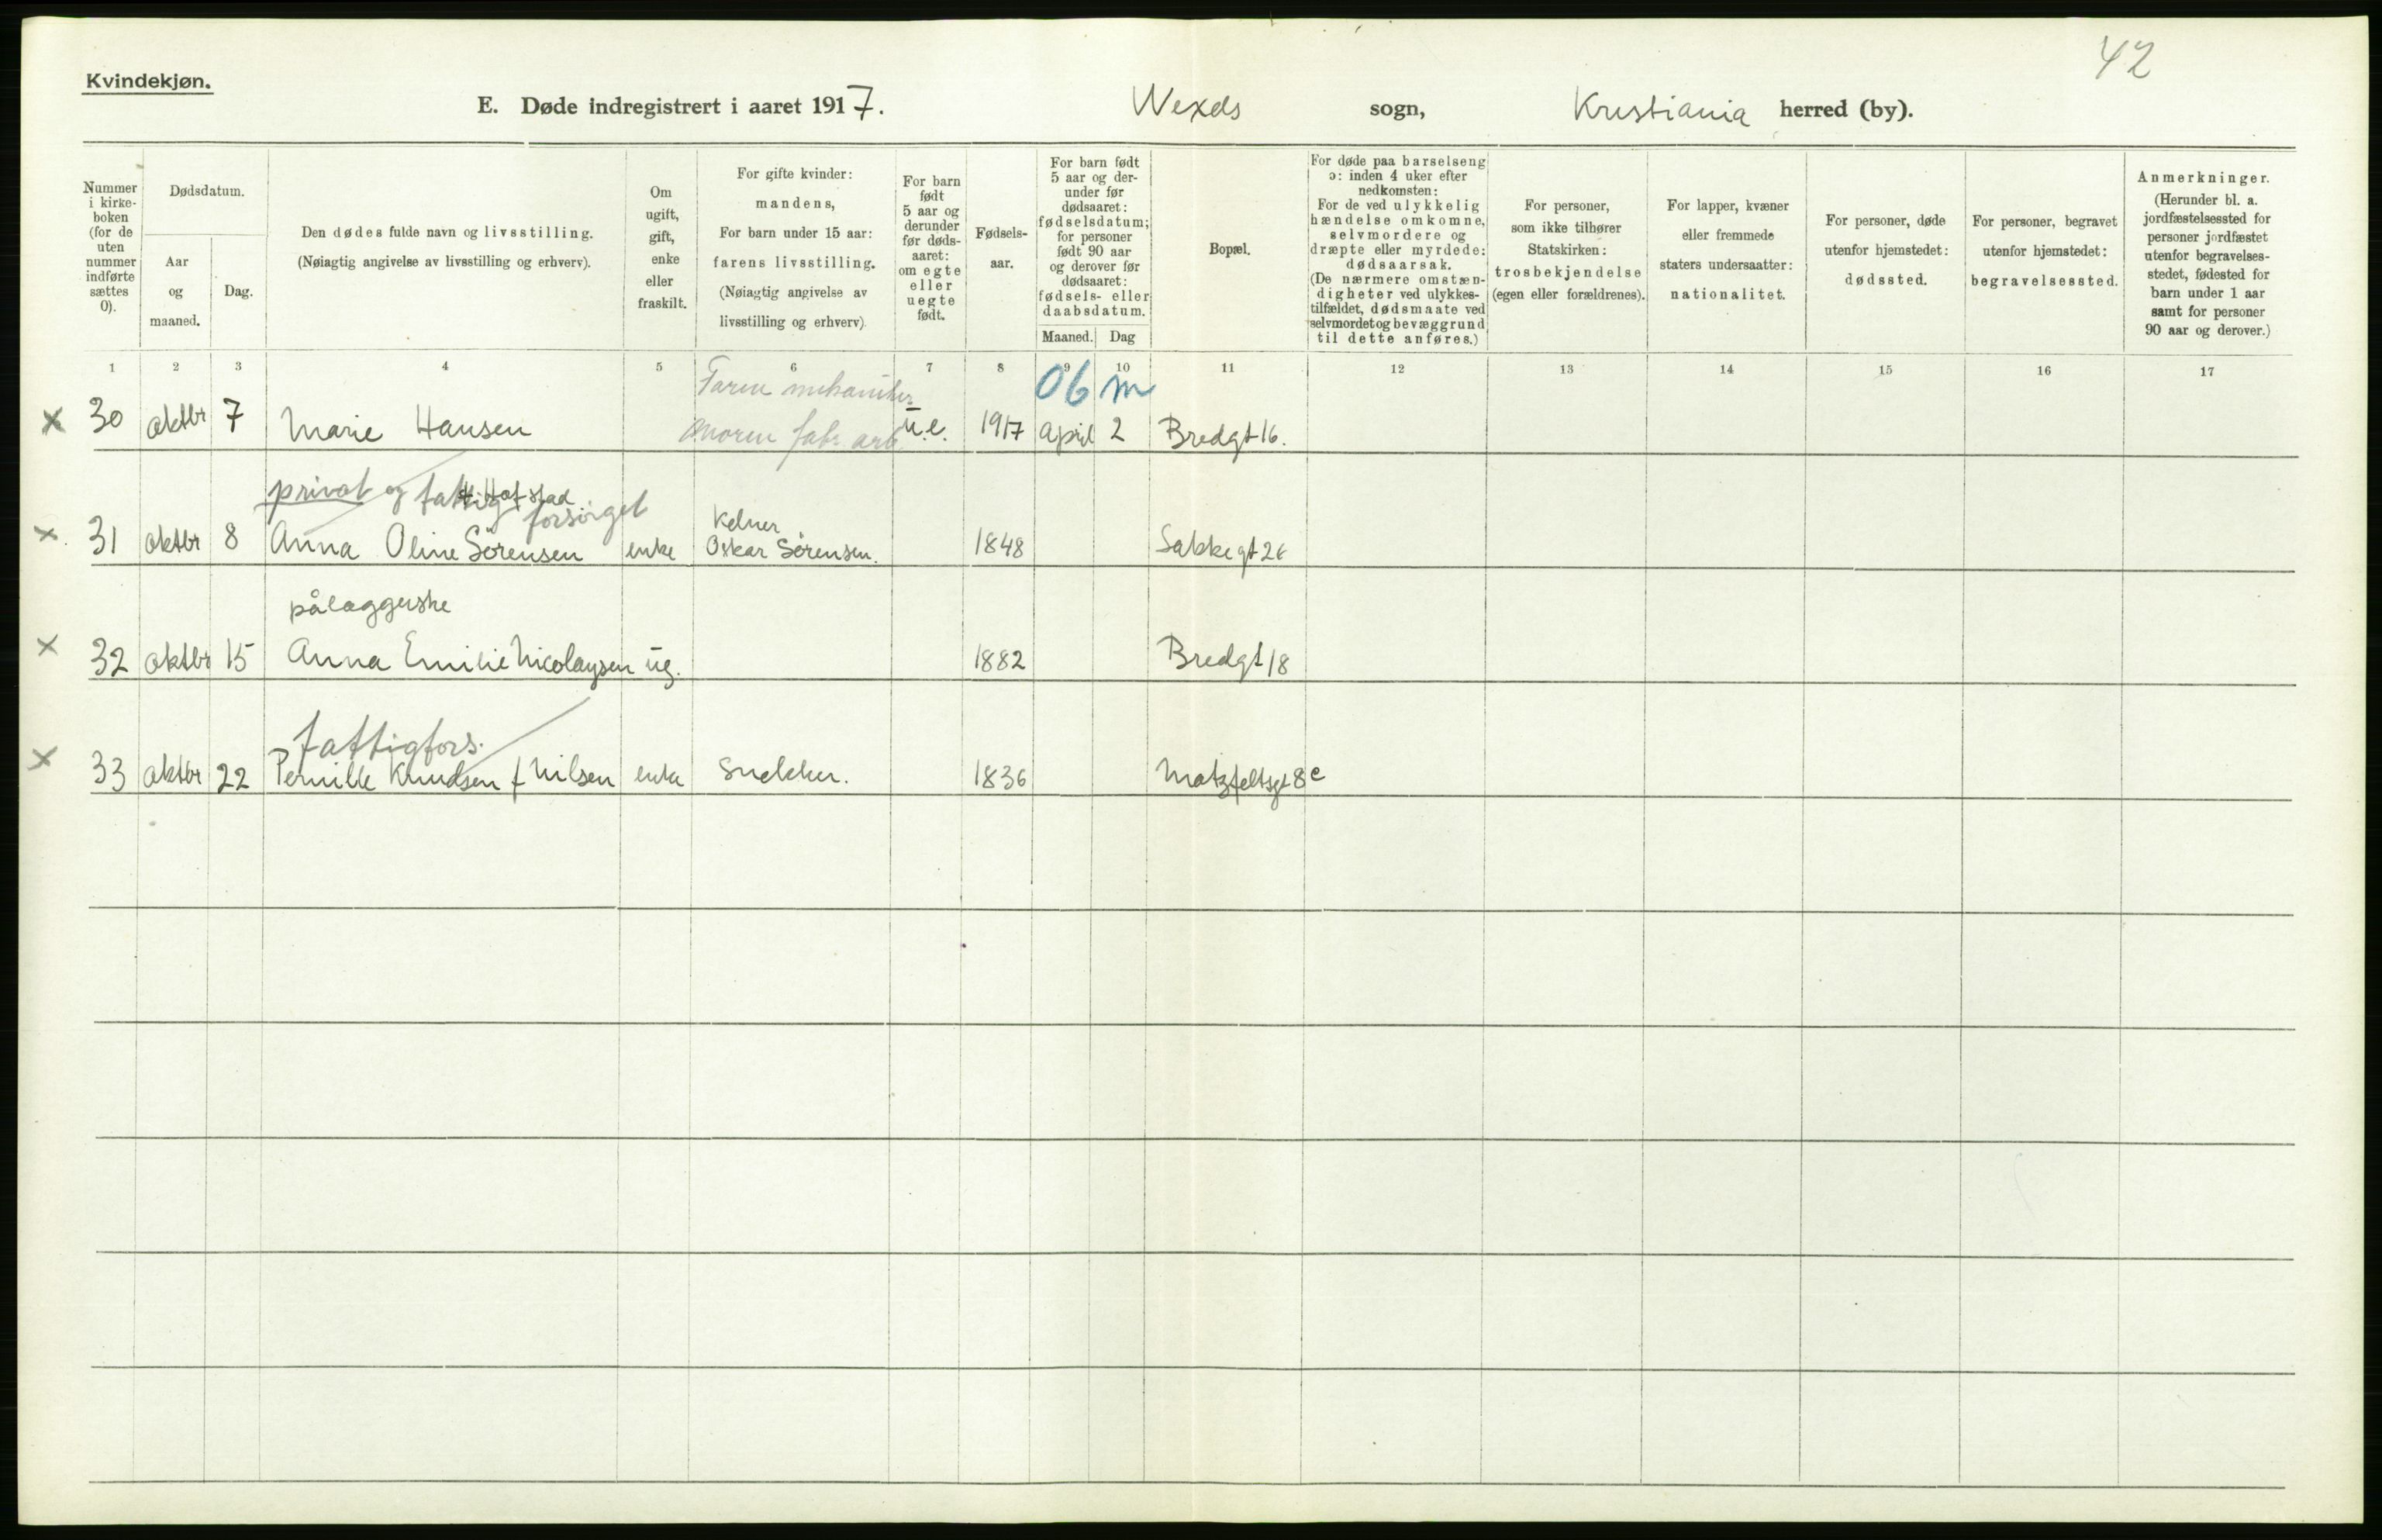 42
Kvindekjøn.
E. Døde indregistrert i aaret 1917. Wexels sogn, Kristiania herred (by).
Nummer i kirkeboken (for de uten nummer indførte sættes 0).
Dødsdatum.
Aar og maaned.
Dag.
Den dødes fulde navn og livsstilling.
(Nøiagtig angivelse av livsstilling og erhverv).
Om ugift, gift, enke eller fraskilt.
For gifte kvinder: mandens,
For barn under 15 aar: farens livsstilling.
(Nøiagtig angivelse av livsstilling og erhverv)
For barn født 5 aar og derunder før dødsaaret: om egte eller uegte født.
Fødselsaar.
For barn født 5 aar og derunder før dødsaaret: fødselsdatum; for personer født 90 aar og derover før dødsaaret: fødsels- eller daabsdatum.
Maaned. Dag
Bopæl.
For døde paa barselseng ɔ: inden 4 uker efter nedkomsten:
For de ved ulykkelig hændelse omkomne, selvmordere og dræpte eller myrdede: dødsaarsak.
(De nærmere omstændigheter ved ulykkestilfældet, dødsmaate ved selvmordet og bevæggrund til dette anføres.)
For personer, som ikke tilhører Statskirken: trosbekjendelse (egen eller forældrenes).
For lapper, kvæner eller fremmede staters undersaatter: nationalitet.
For personer, døde utenfor hjemstedet: dødssted.
For personer, begravet utenfor hjemstedet: begravelsessted.
Anmerkninger.
(Herunder bl. a. jordfæstelsessted for personer jordfæstet utenfor begravelsesstedet, fødested for barn under 1 aar samt for personer 90 aar og derover.)
1 2 3 4 5 6 7 8 9 10 11 12 13 14 15 16 17
Faren mekaniker 06 m
x 30 oktbr 7 Marie Hansen moren fabr. arb. u.e. 1917 april 2 Bredgt 16.
privat og fattig forsørget
f. Hofstad Kelner
x. 31 oktbr 8 Anna Oline Sørensen enke Oskar Sørensen. 1848 Sakkegt 26
pålæggerske
x 32 oktbr 15 Anna Emilie Nicolaysen ug. 1882 Bredgt 18
fattigfors.
x 33 oktbr 22 Pernille Knudsen f Nilsen enke Snekker. 1836 Motzfeltsgt 8c